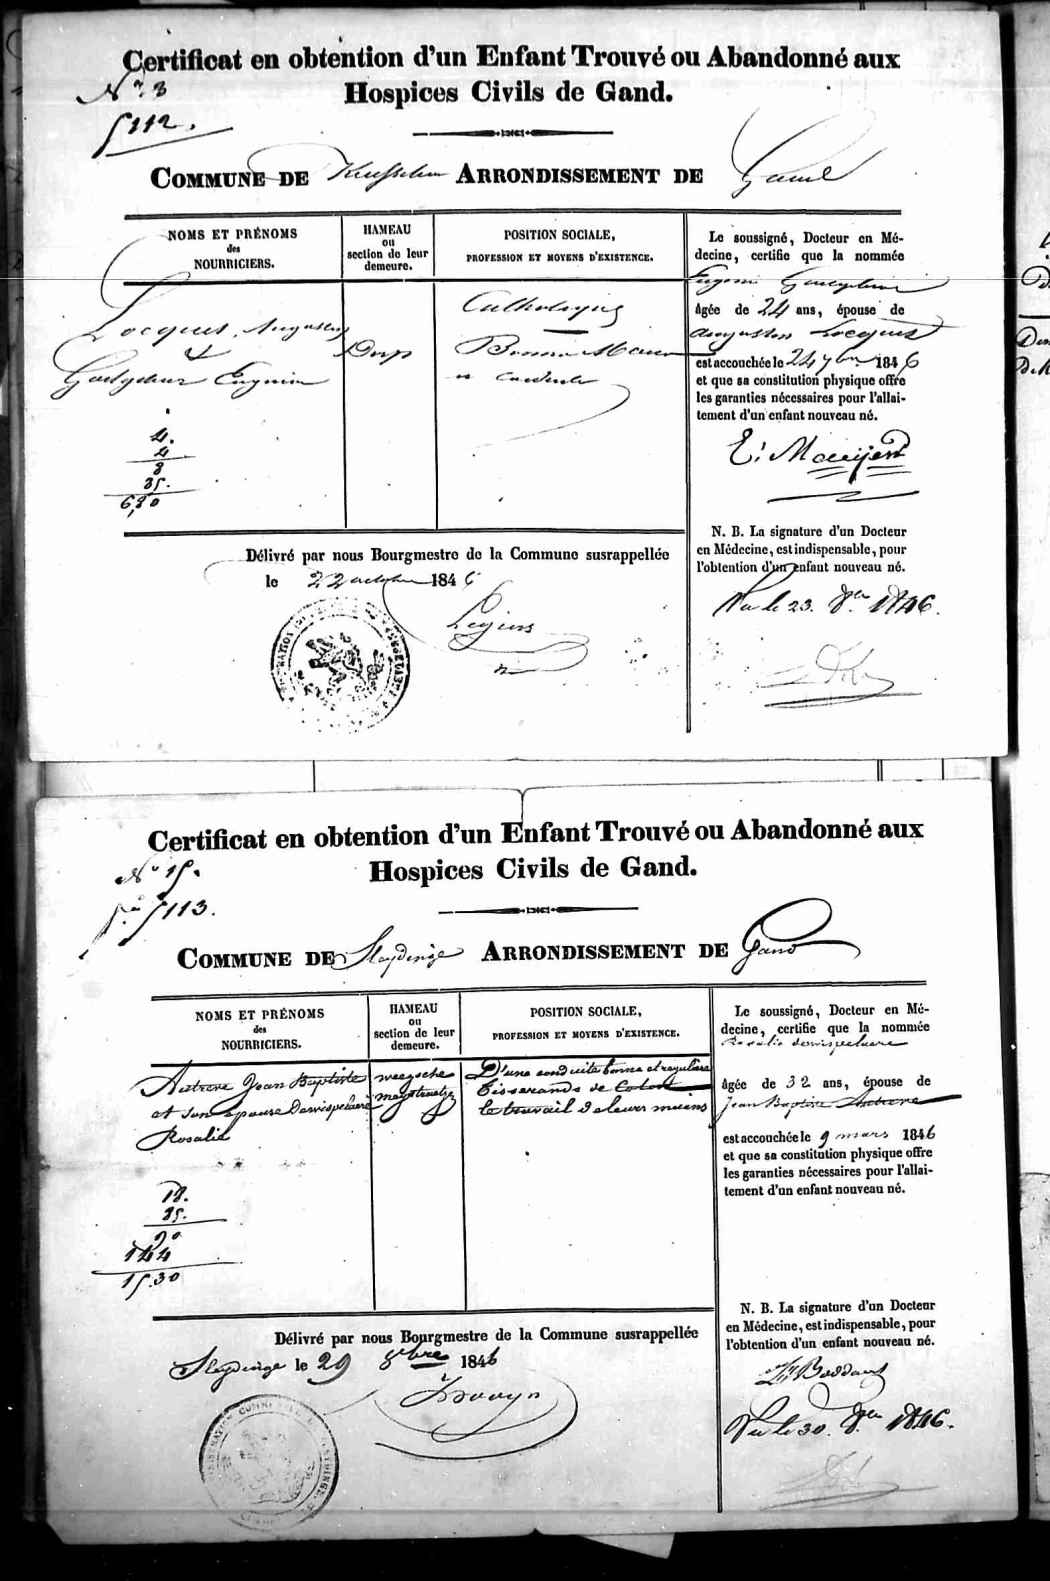 Certificat en obtention d'un Enfant Trouvé ou Abandonné aux
Hospices Civils de Gand.
N° 3
5112.
COMMUNE DE ARRONDISSEMENT DE Gand
NOMS ET PRÉNOMS
des
NOURRICIERS.
HAMEAU
ou
section de leur
demeure.
POSITION SOCIALE,
PROFESSION ET MOYENS D'EXISTENCE.
Locquet, Augustus
&
Eugenie
Dorp
Catholique
Bonne
Le soussigné, Docteur en Mé-
decine, certifie que la nommée
Eugenie
âgée de 24 ans, épouse de
Augustus Locquet
est accouchée le 24 7bre 1846
et que sa constitution physique offre
les garanties nécessaires pour l'allai-
tement d'un enfant nouveau né.
4.
4
8
35.
6,80
N. B. La signature d'un Docteur
en Médecine, est indispensable, pour
l'obtention d'un enfant nouveau né.
Délivré par nous Bourgmestre de la Commune susrappellée
le 22 octobre 1846
Vu le 23. 8bre 1846.
Certificat en obtention d'un Enfant Trouvé ou Abandonné aux
Hospices Civils de Gand.
N° 15.
5113.
COMMUNE DE Sleydinge ARRONDISSEMENT DE Gand
NOMS ET PRÉNOMS
des
NOURRICIERS.
HAMEAU
ou
section de leur
demeure.
POSITION SOCIALE,
PROFESSION ET MOYENS D'EXISTENCE.
Jean Baptiste
et son épouse Dewispelaere
Rosalie
D'une conduite bonne et régulière
Tisserands de Coton
le travail de leurs mains
Le soussigné, Docteur en Mé-
decine, certifie que la nommée
Rosalie dewispelaere
âgée de 32 ans, épouse de
Jean Baptiste
est accouchée le 9 mars 1846
et que sa constitution physique offre
les garanties nécessaires pour l'allai-
tement d'un enfant nouveau né.
18.
35.
90
144
15.30
N. B. La signature d'un Docteur
en Médecine, est indispensable, pour
l'obtention d'un enfant nouveau né.
Délivré par nous Bourgmestre de la Commune susrappellée
Sleydinge le 29 8bre 1846
Vu le 30. 8bre 1846.